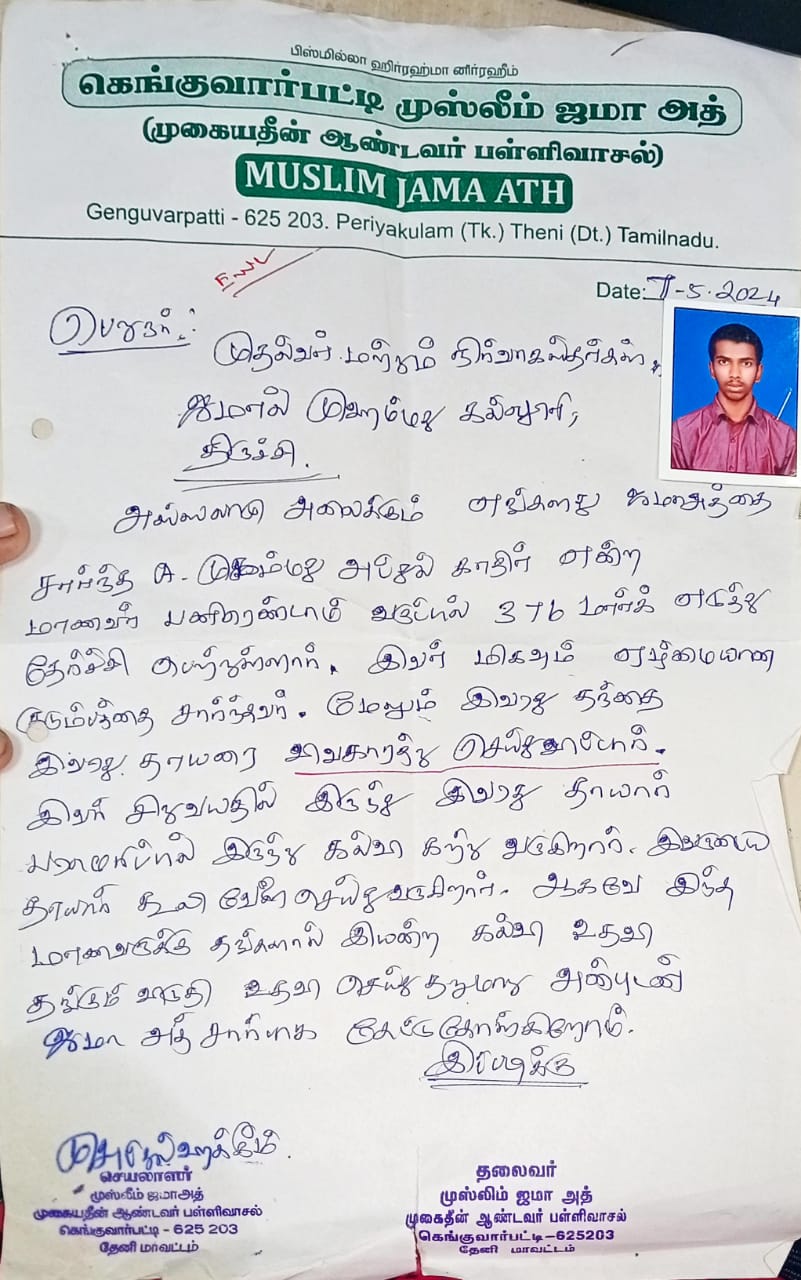 பிஸ்மில்லா ஹிர்ரஹ்மா னிர்ரஹீம்
கெங்குவார்பட்டி முஸ்லீம் ஜமா அத்
(முகையதீன் ஆண்டவர் பள்ளிவாசல்)
MUSLIM JAMA ATH
Genguvarpatti - 625 203. Periyakulam (Tk.) Theni (Dt.) Tamilnadu.
Date: 7-5-2024
பெறுநர்:
முதல்வர் மற்றும் நிர்வாகஸ்தர்கள்,
ஜமால் முஹம்மது கல்லூரி,
திருச்சி.
அஸ்ஸலாமு அலைக்கும் எங்களது ஜமாஅத்தை
சார்ந்த A. முகம்மது அப்துல் காதிர் என்ற
மாணவர் பனிரெண்டாம் வகுப்பில் 376 மார்க் எடுத்து
தேர்ச்சி பெற்றுள்ளார். இவர் மிகவும் ஏழ்மையான
குடும்பத்தை சார்ந்தவர். மேலும் இவரது தந்தை
இவரது தாயாரை விவகாரத்து செய்துவிட்டார்.
இவர் சிறுவயதில் இருந்து இவரது தாயார்
பராமரிப்பில் இருந்து கல்வி கற்று வருகிறார். இவருடைய
தாயார் கூலி வேலை செய்து வருகிறார். ஆகவே இந்த
மாணவருக்கு தங்களால் இயன்ற கல்வி உதவி
தங்கும் விடுதி உதவி செய்து தருமாறு அன்புடன்
ஜமா அத் சார்பாக கேட்டுகொள்கிறோம்.
இப்படிக்கு
செயலாளர்
முஸ்லீம் ஜமாஅத்
முகையதீன் ஆண்டவர் பள்ளிவாசல்
கெங்குவார்பட்டி - 625 203
தேனி மாவட்டம்
தலைவர்
முஸ்லிம் ஜமா அத்
முகைதீன் ஆண்டவர் பள்ளிவாசல்
கெங்குவார்பட்டி-625203
தேனி மாவட்டம்